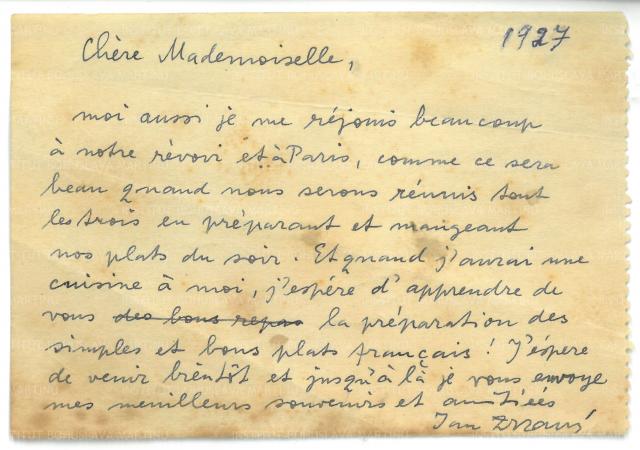 1927
Chère Mademoiselle,
moi aussi je me réjouis beaucoup
à notre révoir et à Paris, comme ce sera
beau quand nous serons réunis tout
les trois en préparant et mangeant
nos plats du soir. Et quand j'aurai une
cuisine à moi, j'espére d'apprendre de
vous des bons repas la préparation des
simples et bons plats français! J'éspére
de venir bientôt et jusqu'à là je vous envoye
mes menilleurs souvenirs et amitiées